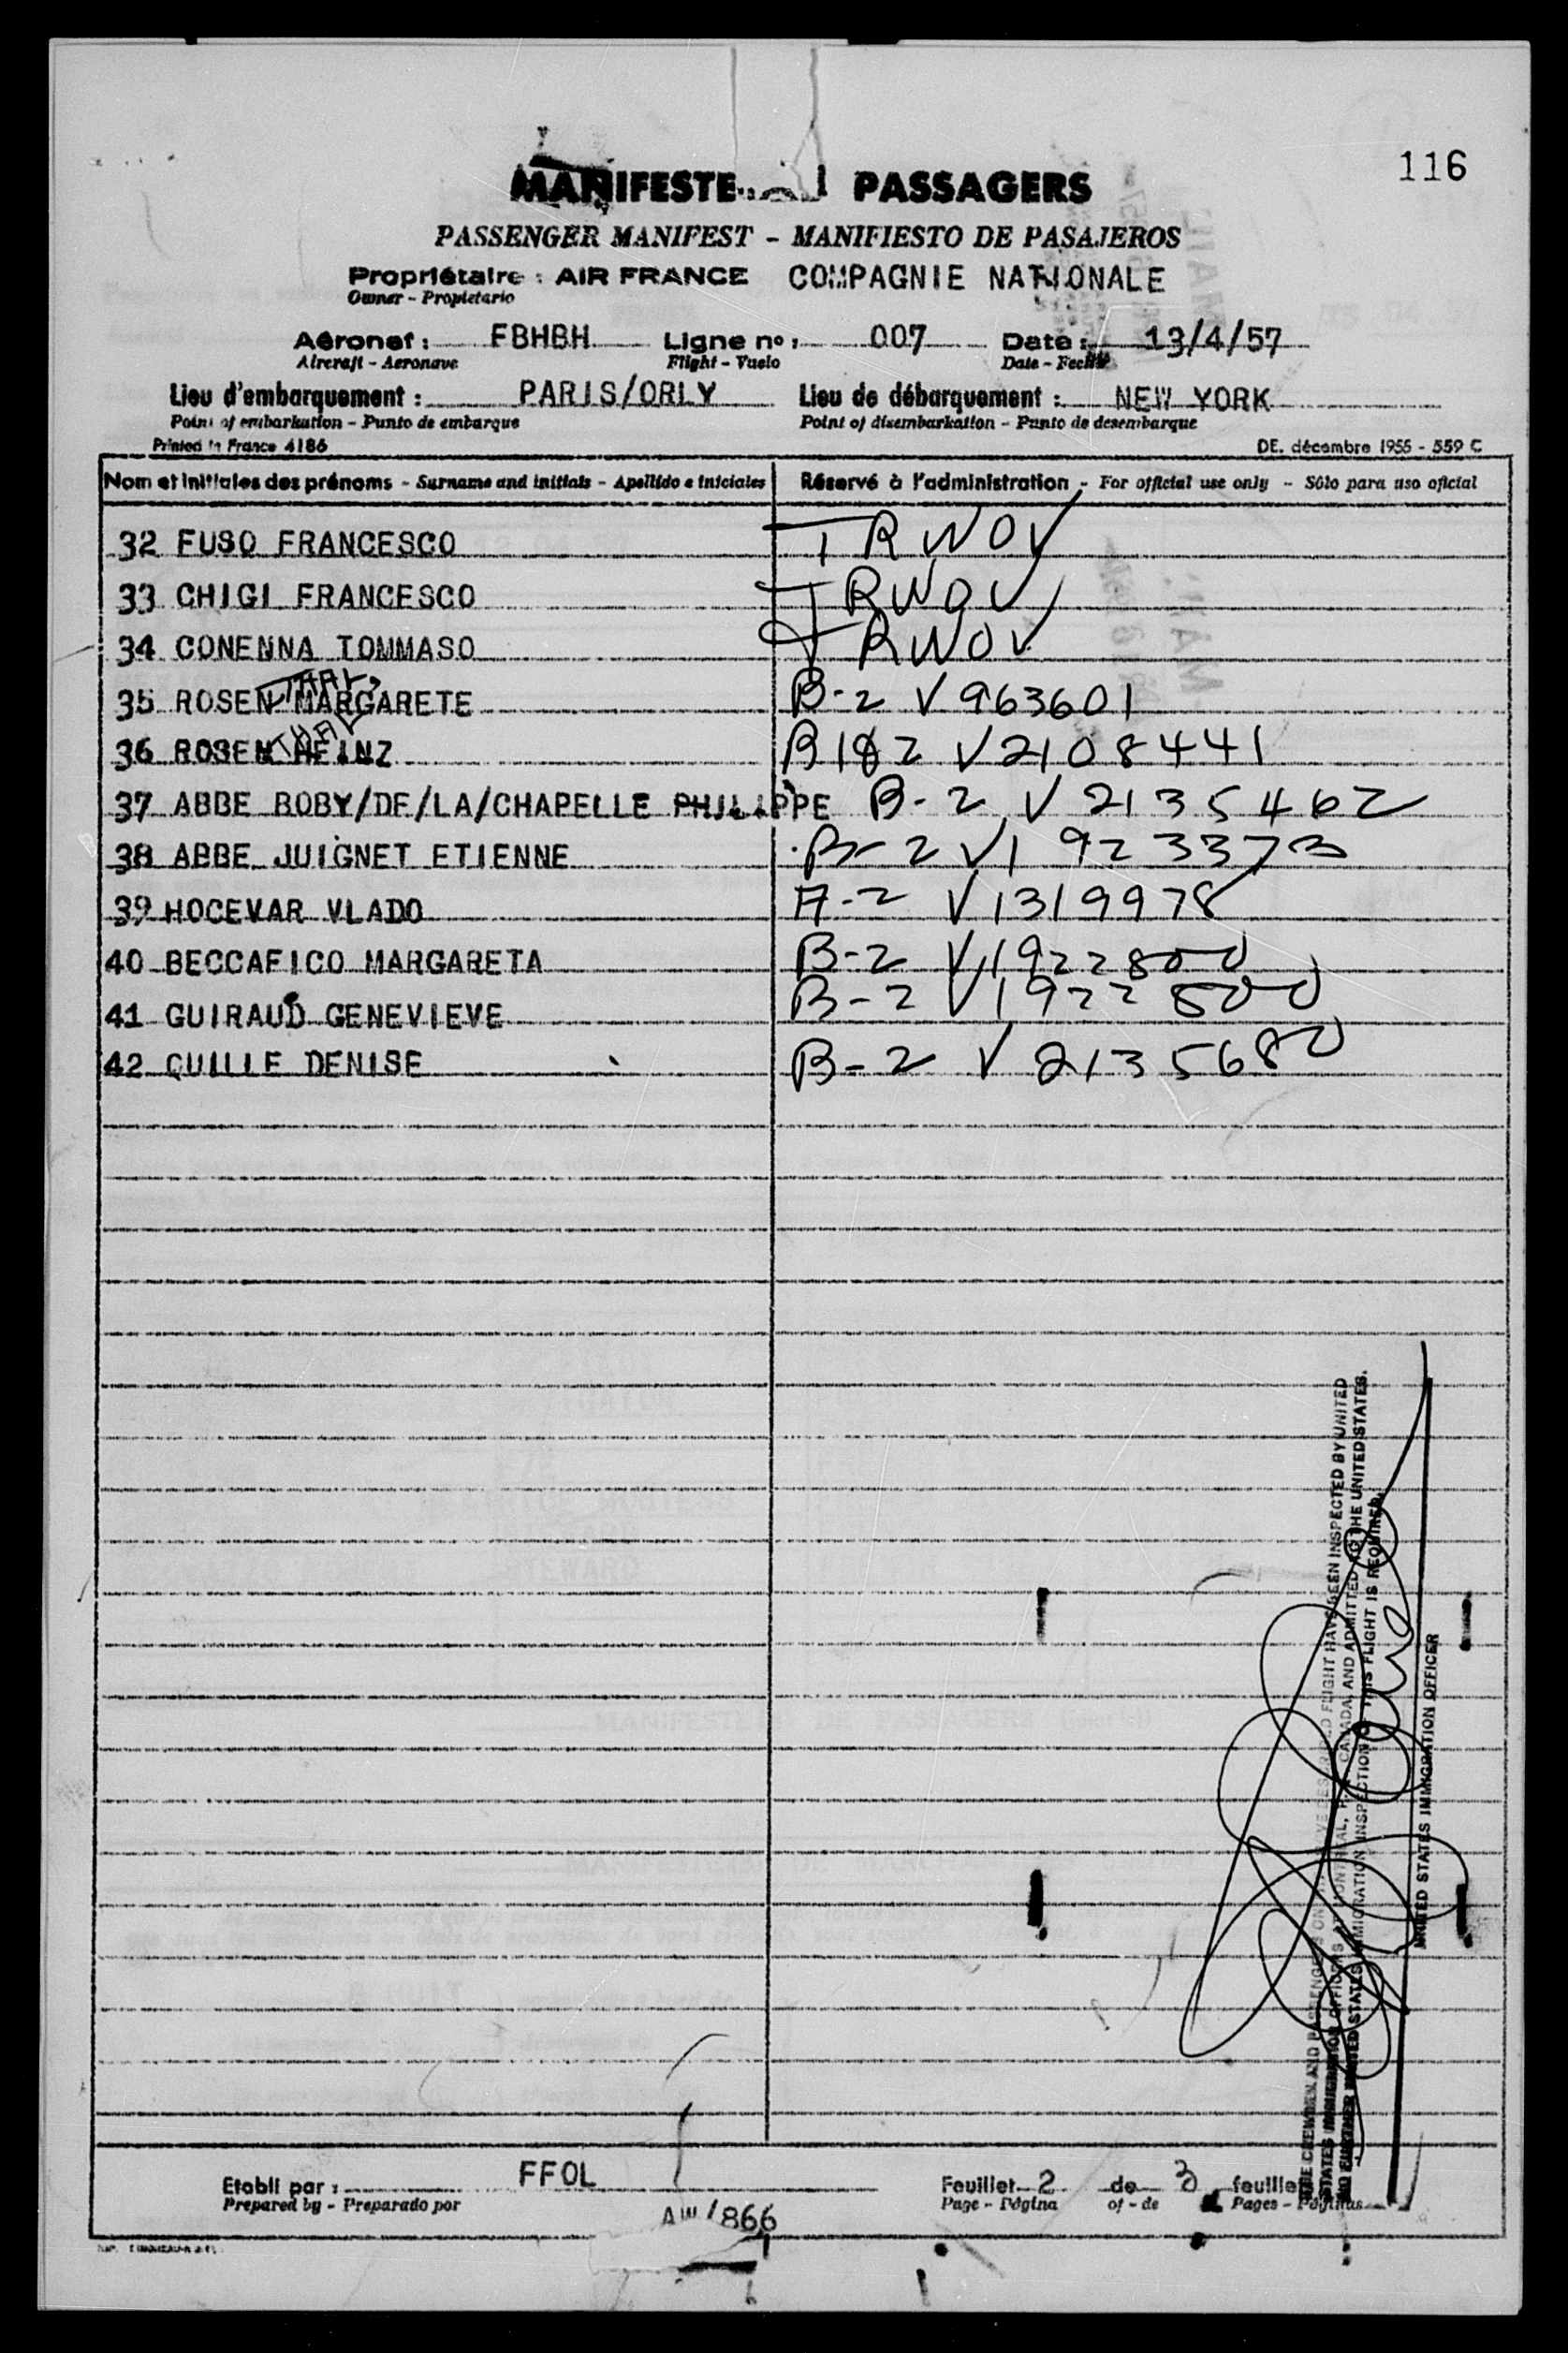 116
MANIFESTE PASSAGERS
PASSENGER MANIFEST - MANIFIESTO DE PASAJEROS
Propriétaire : AIR FRANCE COMPAGNIE NATIONALE
Owner - Propietario
Aéronef : FBHBH Ligne no : 007 Date : 13/4/57
Aircraft - Aeronave Flight - Vuelo Date - Fecha
Lieu d'embarquement : PARIS/ORLY Lieu de débarquement : NEW YORK
Point of embarkation - Punto de embarque Point of disembarkation - Punto de desembarque
Printed in France 4186 DE. décembre 1955 - 559 C
Nom et initiales des prénoms - Surname and initials - Apellido e iniciales Réservé à l'administration - For official use only - Sólo para uso oficial
32 FUSO FRANCESCO TRWOV
33 CHIGI FRANCESCO TRWOV
34 CONENNA TOMMASO TRWOV
35 ROSEN MARGARETE B-2 V 963601
36 ROSEN HEINZ B1&2 V 2108441
37 ABBE BOBY/DE/LA/CHAPELLE PHILIPPE B-2 V 2135462
38 ABBE JUIGNET ETIENNE B-2 V 1923373
39 HOCEVAR VLADO A-2 V 1319978
40 BECCAFICO MARGARETA B-2 V 1922800
41 GUIRAUD GENEVIEVE B-2 V 1922800
42 QUILLE DENISE B-2 V 2135680
THE CREWMEN AND PASSENGERS ON THE ABOVE DESCRIBED FLIGHT HAVE BEEN INSPECTED BY UNITED
STATES IMMIGRATION OFFICERS AT MONTREAL, CANADA, AND ADMITTED TO THE UNITED STATES.
NO FURTHER UNITED STATES IMMIGRATION INSPECTION OF THIS FLIGHT IS REQUIRED.
UNITED STATES IMMIGRATION OFFICER
Etabli par : FFOL Feuillet 2 de 3 feuillets
Prepared by - Preparado por Page - Página of - de Pages - Páginas
AW/866